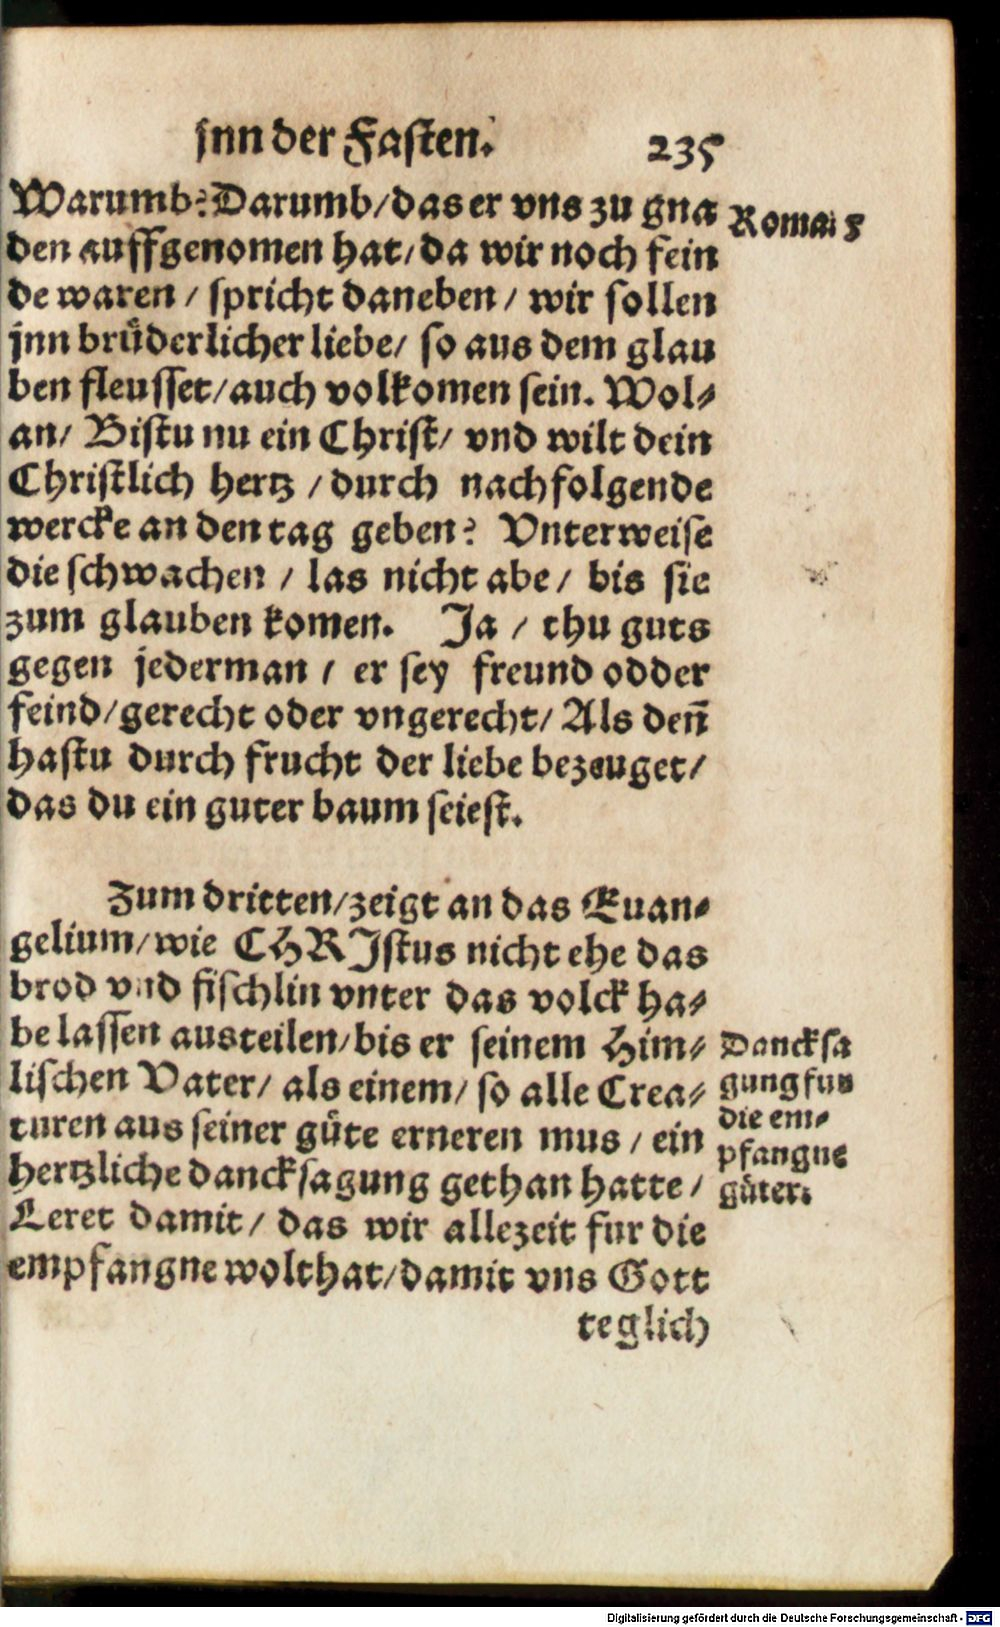 jnn der Fasten. 235
Warumb? Darumb / das er vns zu gna
den auffgenomen hat / da wir noch fein
de waren / spricht daneben / wir sollen
jnn brüderlicher liebe / so aus dem glau
ben fleusset / auch volkomen sein. Wol-
an / Bistu nu ein Christ / vnd wilt dein
Christlich hertz / durch nachfolgende
wercke an den tag geben? Vnterweise
die schwachen / las nicht abe / bis sie
zum glauben komen. Ja / thu guts
gegen jederman / er sey freund odder
feind / gerecht oder vngerecht / Als deñ
hastu durch frucht der liebe bezeuget /
das du ein guter baum seiest.
Zum dritten / zeigt an das Euan-
gelium / wie CHRIstus nicht ehe das
brod vnd fischlin vnter das volck ha-
be lassen austeilen / bis er seinem Him-
lischen Vater / als einem / so alle Crea-
turen aus seiner güte erneren mus / ein
hertzliche dancksagung gethan hatte /
Leret damit / das wir allezeit fur die
empfangne wolthat / damit vns Gott
teglich
Roma. 5
Dancksa
gung fur
die em-
pfangne
güter.
Digitalisierung gefördert durch die Deutsche Forschungsgemeinschaft - DFG